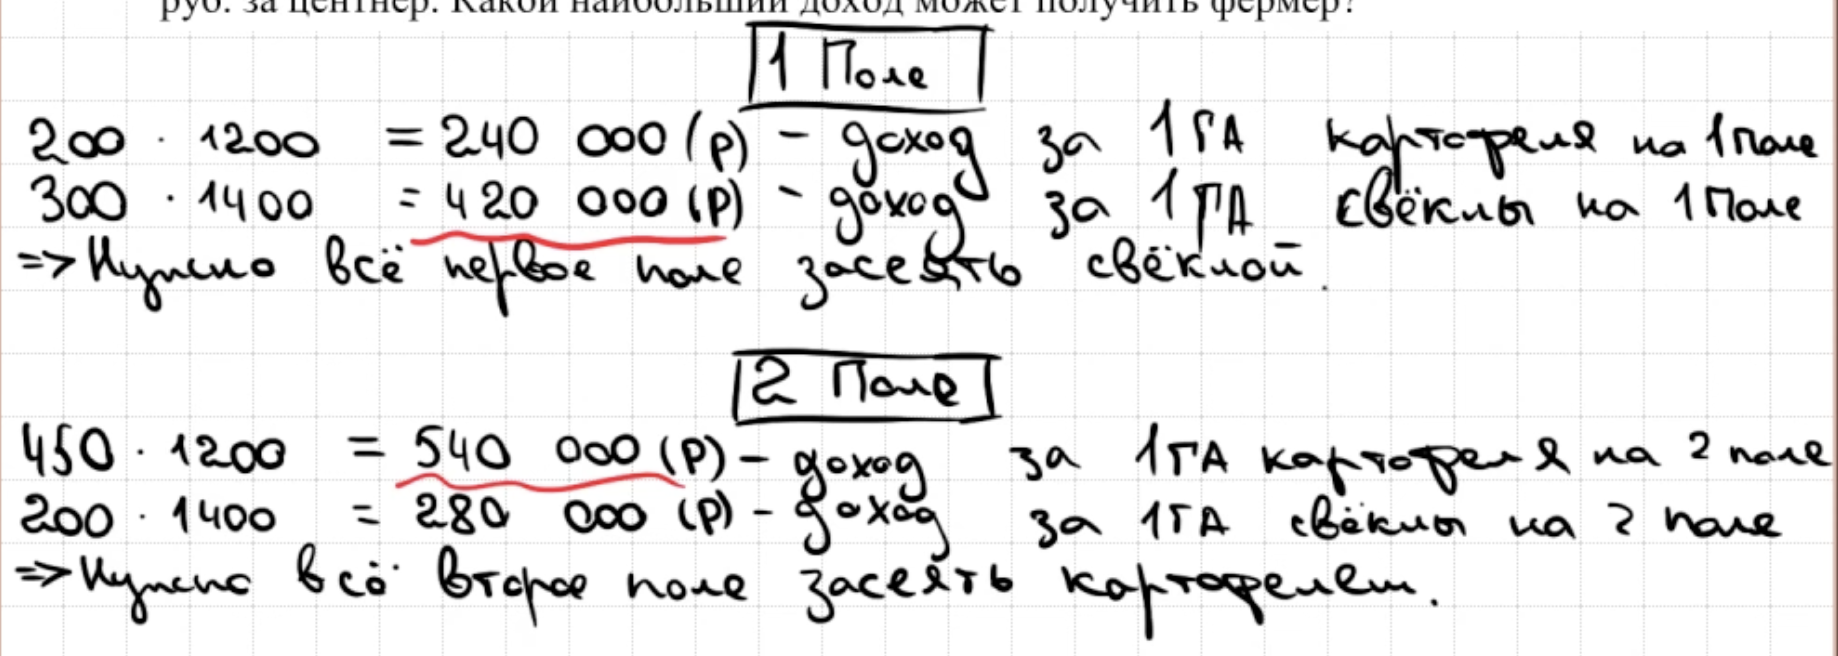 руб. за центнер. Какой наибольший доход может получить фермер?
1 Поле
200 · 1200 = 240 000 (р) - доход за 1 ГА картофеля на 1 поле
300 · 1400 = 420 000 (р) - доход за 1 ГА свёклы на 1 Поле
=> Нужно всё первое поле засеять свёклой.
2 Поле
450 · 1200 = 540 000 (р) - доход за 1 ГА картофеля на 2 поле
200 · 1400 = 280 000 (р) - доход за 1 ГА свёклы на 2 поле
=> Нужно всё второе поле засеять картофелем.